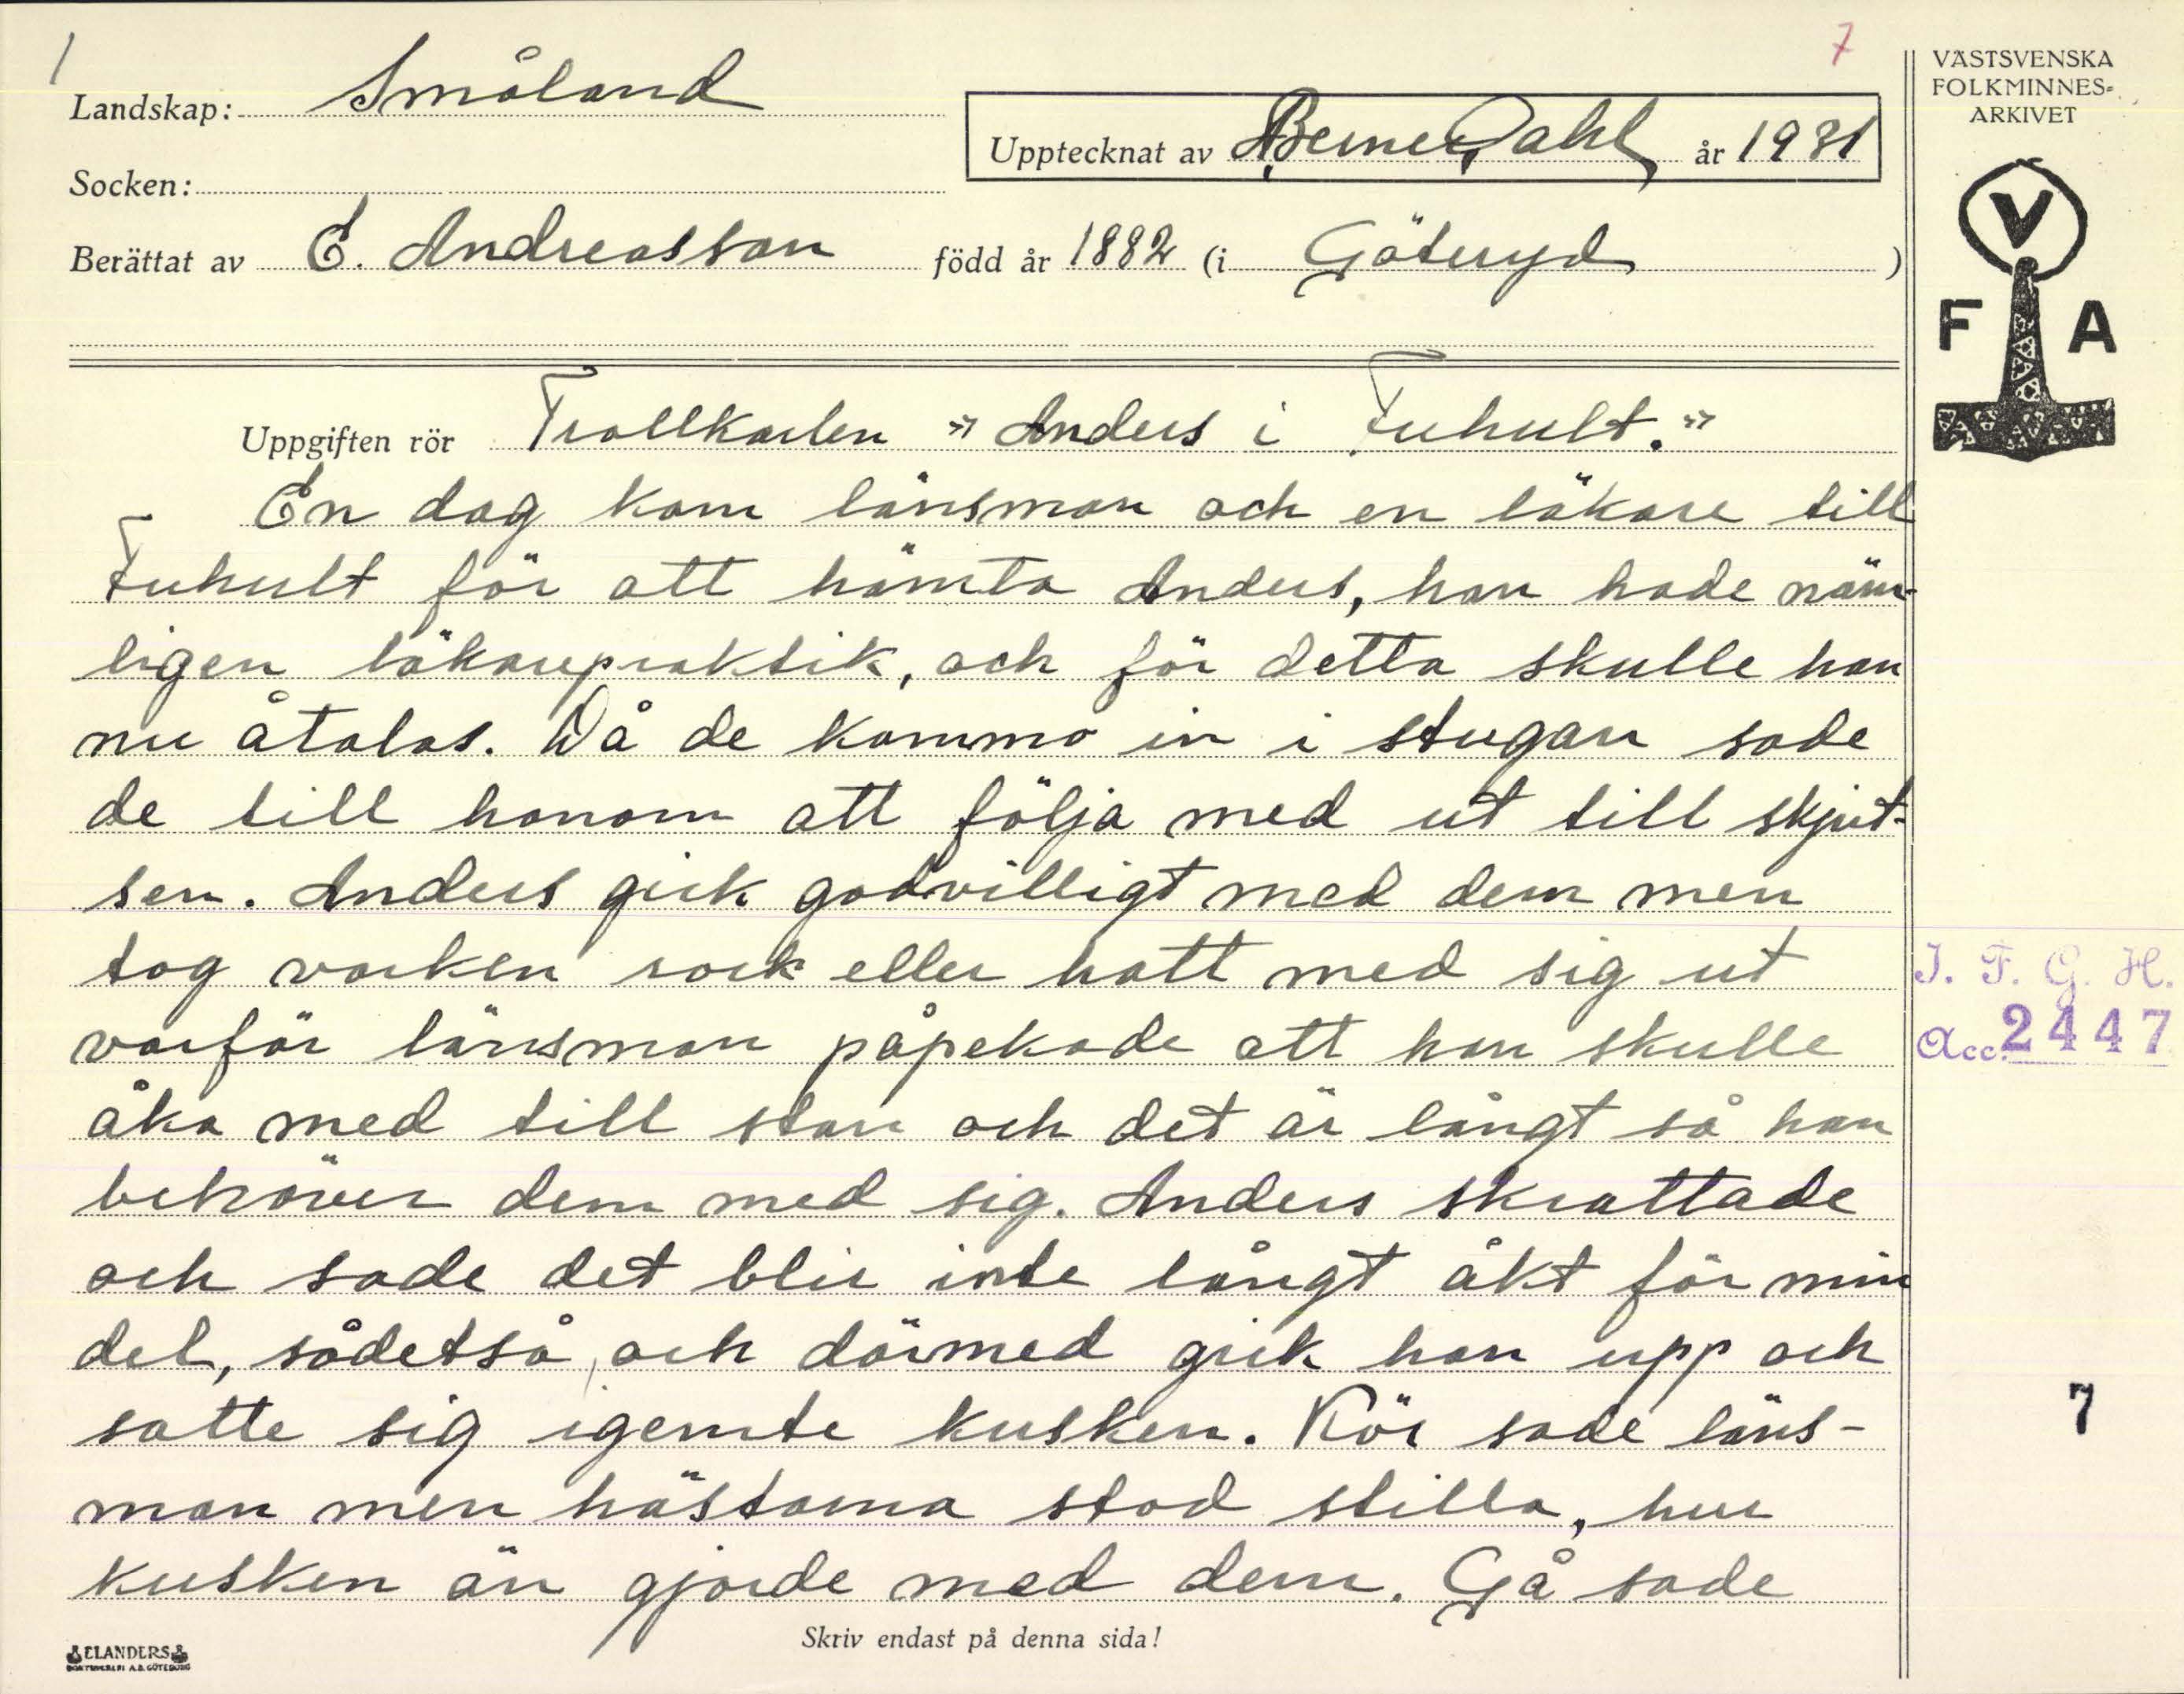 1
7
Landskap: Småland
Upptecknat av Berner Dahl år 1931
Socken:
Berättat av E. Andreasson född år 1882 (i Göteryd)
VÄSTSVENSKA
FOLKMINNES-
ARKIVET
V
F A
Uppgiften rör Trollkarlen "Anders i Fuhult."
En dag kom länsman och en läkare till
Fuhult för att hämta Anders, han hade näm-
ligen läkarepraktik, och för detta skulle han
nu åtalas. Då de kommo in i stugan sade
de till honom att följa med ut till skjut-
sen. Anders gick godvilligt med dem men
tog varken rock eller hatt med sig ut
varför länsman påpekade att han skulle
åka med till stan och det är långt så han
behöver dem med sig. Anders skrattade
och sade det blir inte långt åkt för min
del, sådetså, och därmed gick han upp och
satte sig igemte kusken. Kör sade läns-
man men hästarna stod stilla, hur
kusken än gjorde med dem. Gå sade
I. F. G. H.
Acc. 2447
7
Skriv endast på denna sida!
ELANDERS
BOKTRYCKERI A.B. GÖTEBORG